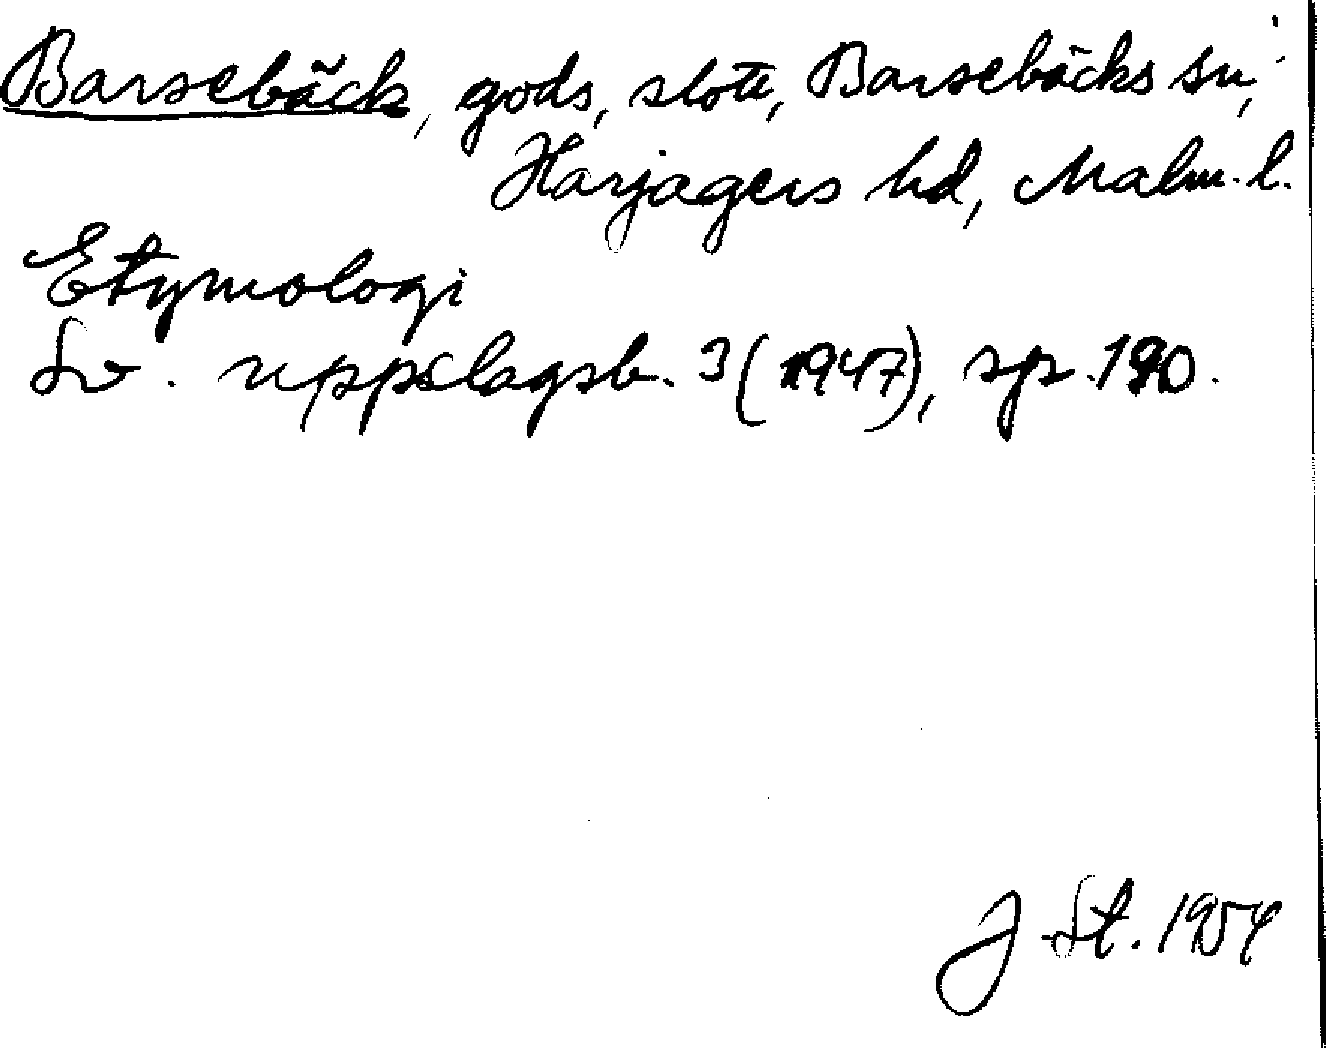 Barsebäck, gods, slott, Barsebäcks sn,
Harjagers hd, Malm. l.
Etymologi
Sv. uppslagsb. 3 (1947), sp. 190.
J St. 1954